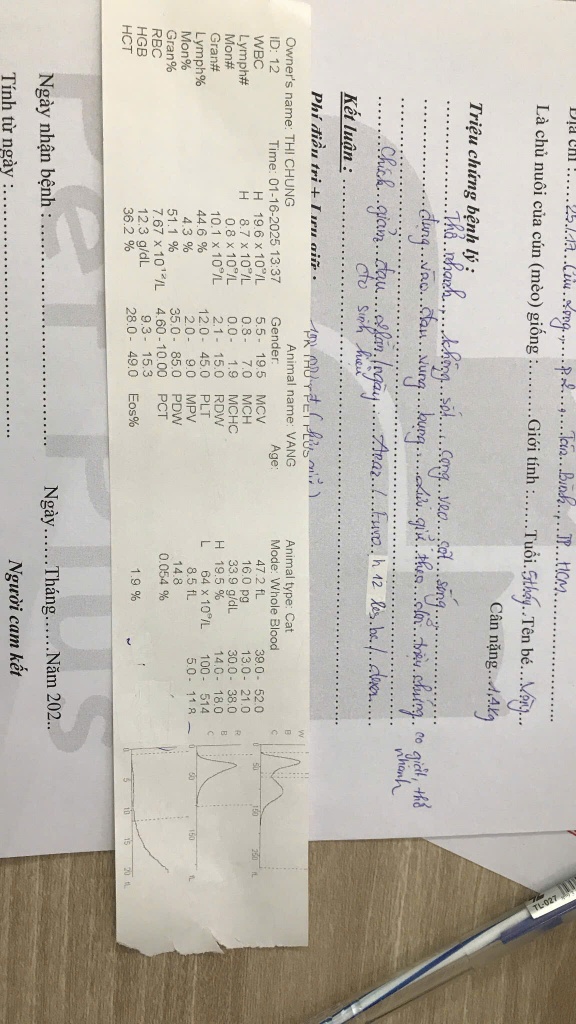 Địa chỉ :.....25/17...Cửu Long,...p2.,..Tân Bình.,..TP..HCM.....
Là chủ nuôi của cún (mèo) giống :...........Giới tính :.......Tuổi.5tháy..Tên bé...Vàng...
Cân nặng...1.4kg
Triệu chứng bệnh lý :
...Thở nhanh,...không sốt...cong vẹo cột sống
đụng vào đau vùng bụng
theo dõi triệu chứng co giật, thở nhanh
Chích giảm đau
do sinh hiệu
Kết luận :
Phí điều trị + Lưu giữ :
PK THU Y PET PLUS
Owner's name: THI CHUNG Animal name: VANG Animal type: Cat
ID: 12 Time: 01-16-2025 13:37 Gender: Age: Mode: Whole Blood
WBC H 19.6 x 10⁹/L 5.5 - 19.5 MCV 47.2 fL 39.0 - 52.0
Lymph# H 8.7 x 10⁹/L 0.8 - 7.0 MCH 16.0 pg 13.0 - 21.0
Mon# 0.8 x 10⁹/L 0.0 - 1.9 MCHC 33.9 g/dL 30.0 - 38.0
Gran# 10.1 x 10⁹/L 2.1 - 15.0 RDW H 19.5 % 14.0 - 18.0
Lymph% 44.6 % 12.0 - 45.0 PLT L 64 x 10⁹/L 100 - 514
Mon% 4.3 % 2.0 - 9.0 MPV 8.5 fL 5.0 - 11.8
Gran% 51.1 % 35.0 - 85.0 PDW 14.8
RBC 7.67 x 10¹²/L 4.60 - 10.00 PCT 0.054 %
HGB 12.3 g/dL 9.3 - 15.3
HCT 36.2 % 28.0 - 49.0 Eos% 1.9 %
W B C
0 50 150 250 fL
R B C
0 50 150 fL
0 5 10 15 20 fL
Ngày nhận bệnh : Ngày......Tháng......Năm 202..
Tính từ ngày : Người cam kết
PetPlus
TL-027